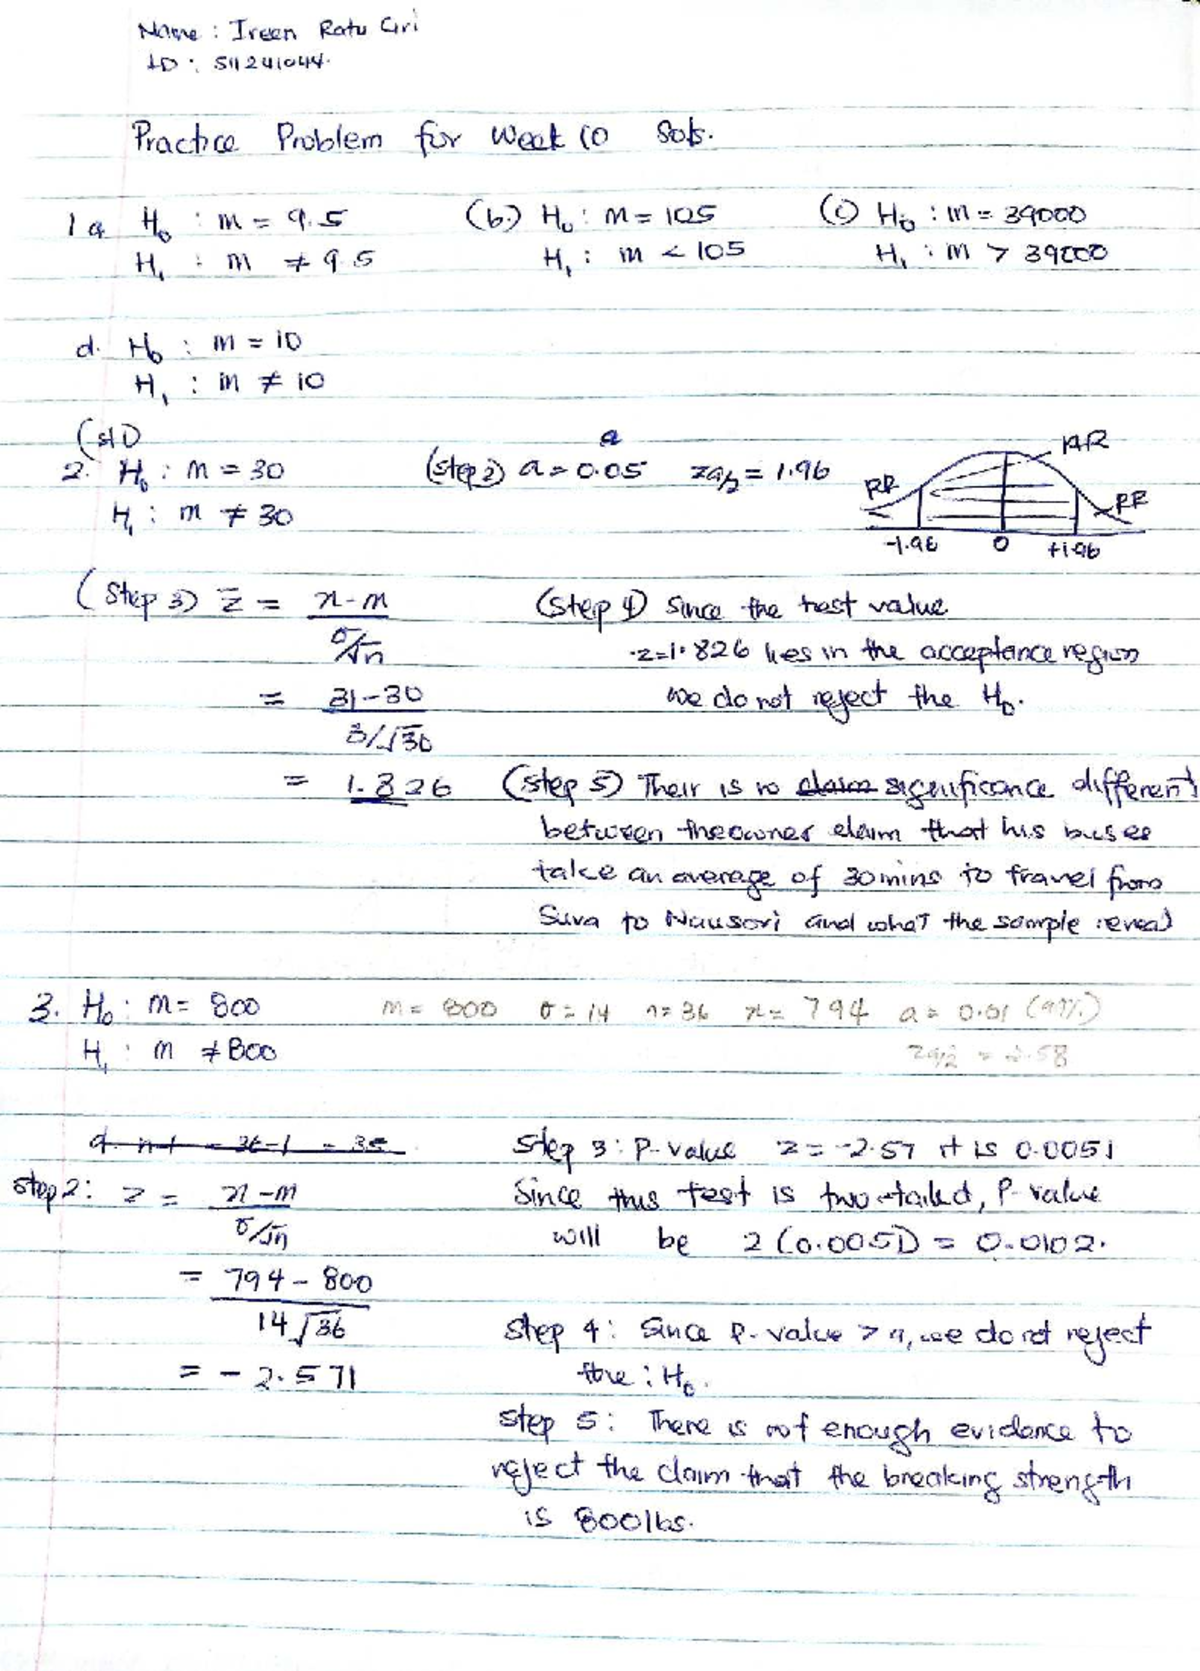 Name : Ireen Ratu Giri
ID : S11241044.
Practice Problem for Week 10 Sols.
1 a H₀ : m = 9.5 (b.) H₀ : m = 105 (c) H₀ : m = 39000
H₁ : m ≠ 9.5 H₁ : m < 105 H₁ : m > 39000
d. H₀ : m = 10
H₁ : m ≠ 10
(st1)
2. H₀ : m = 30 (step 2) a = 0.05 za/2 = 1.96
H₁ : m ≠ 30
AR
RR RR
-1.96 0 +1.96
(Step 3) z = x - m (Step 4) Since the test value
σ/√n z=1.826 lies in the acceptance region
= 31-30 we do not reject the H₀.
3/√30
= 1.826 (step 5) Their is no claim significance different
between the owner claim that his buses
take an average of 30mins to travel from
Suva to Nausori and what the sample reveal
3. H₀ : m = 800 m = 800 σ = 14 n = 36 x = 794 a = 0.01 (99%)
H₁ : m ≠ 800 za/2 = 2.58
d. n-1 = 36-1 = 35 Step 3 : P-value z = -2.57 it is 0.0051
step 2: z = x - m Since this test is two-tailed, P-value
σ/√n will be 2 (0.0051) = 0.0102.
= 794 - 800
14√36 Step 4 : Since P-value > a, we do not reject
= - 2.571 the : H₀.
step 5 : There is not enough evidence to
reject the claim that the breaking strength
is 800lbs.